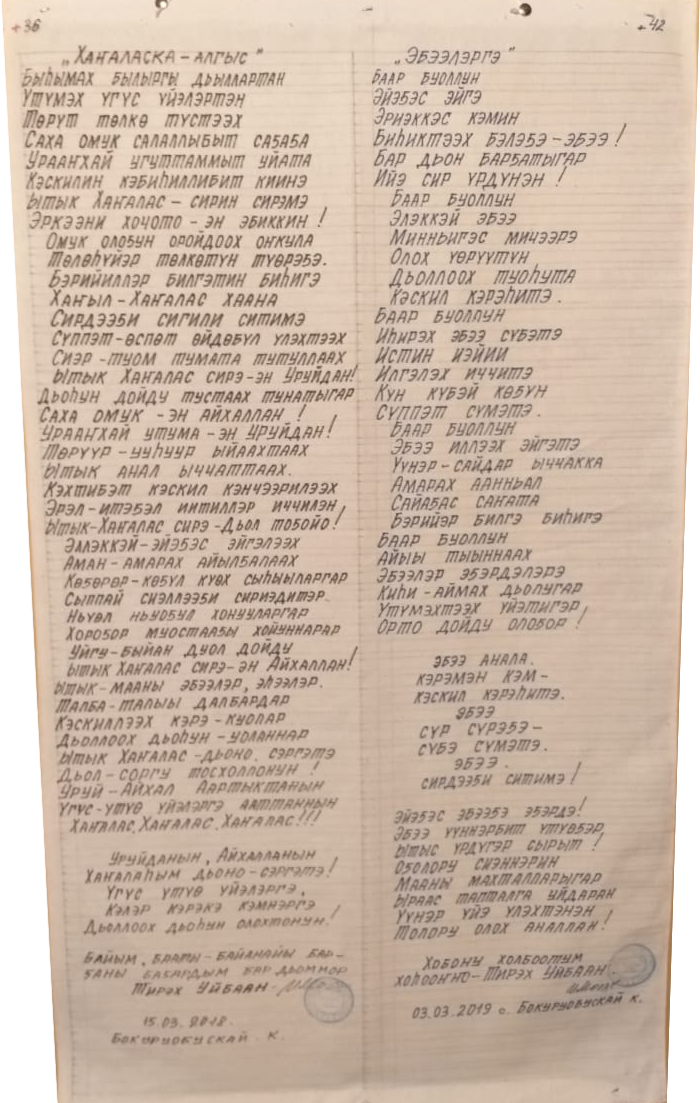 +36
„Хаҥаласка – алгыс"
Быһымах былыргы дьыллартан
Үтүмэх үгүс үйэлэртэн
Төрүт төлкө түстээх
Саха омук салаллыбыт саҕаҕа
Урааҥхай угуттаммыт уйата
Кэскилин кэбиһиллибит киинэ
Ытык Хаҥалас – сирин сирэмэ
Эркээни хочото – эн эбиккин!
Омук олоҕун оройдоох оҥкула
Төлөһүйэр төлкөтүн түөрэҕэ.
Бэрийиллэр билгэтин биһигэ
Хаҥыл – Хаҥалас хаана
Сирдээҕи сигили ситимэ
Сүппэт – өспөт өйдөбүл үлэхтээх
Сиэр – туом тумата тутуллаах
Ытык Хаҥалас сирэ – эн Уруйдан!
Дьоһун дойду тустаах тунатыгар
Саха омук – эн айхаллан!
Урааҥхай утума – эн уруйдан!
Төрүүр – ууһуур ыйаахтаах
Ытык анал ыччаттаах.
Кэхтибэт кэскил кэнчээрилээх
Эрэл – итэҕэл иитиллэр иччилэн
Ытык – Хаҥалас сирэ – Дьол тобойо!
Эллэккэй – эйэҕэс эйгэлээх
Аман – амарах айылҕалаах
Көҕөрөр – көбүл күөх сыһыыларгар
Сыппай сиэллээҕи сириэдитэр
Ньуөл ньуобул хонууларгар
Хороҕор муостааҕы хойуннарар
Уйгу – быйан дуол дойду
Ытык Хаҥалас сирэ – эн Айхаллан!
Ытык – мааны эбээлэр, эһээлэр.
Талба – талыы далбардар
Кэскиллээх кэрэ – куолар
Дьоллоох дьоһун – уоланнар
Ытык Хаҥалас – дьоно, сэргэтэ
Дьол – соргу тосхоллонун!
Уруй – Айхал Аартыктанын
Үгүс – үтүө үйэлэргэ ааттаннын
Хаҥалас, Хаҥалас, Хаҥалас!!!
Уруйданын, Айхалланын
Хаҥалаһым дьоно – сэргэтэ!
Үгүс үтүө үйэлэргэ,
Кэлэр кэрэкэ кэмнэргэ
Дьоллоох дьоһун олохтонун!
Байым, браты – байанайы бар–
ҕаны баҕардым бар дьоммор
Тирэх Уйбаан –
15.03.2018.
Бокуруобускай к.
+42
„Эбээлэргэ"
Баар буоллун
Эйэҕэс эйгэ
Эриэккэс кэмин
Биһиктээх бэлэҕэ – эбээ!
Бар дьон барҕатыгар
Ийэ сир үрдүнэн!
Баар буоллун
Элэккэй эбээ
Минньигэс мичээрэ
Олох үөрүүтүн
Дьоллоох туоһута
Кэскил кэрэһитэ.
Баар буоллун
Иһирэх эбээ сүбэтэ
Истин иэйии
Илгэлэх иччитэ
Күн күбэй көҕүн
Сүппэт сүмэтэ.
Баар буоллун
Эбээ иллээх эйгэтэ
Үүнэр – сайдар ыччакка
Амарах аанньал
Сайаҕас саҥата
Бэрийэр билгэ биһигэ
Баар буоллун
Айыы тыыннаах
Эбээлэр эҕэрдэлэрэ
Киһи – аймах дьолугар
Үтүмэхтээх үйэтигэр
Орто дойду олоҕор!
Эбээ анала.
кэрэмэн кэм –
кэскил кэрэһитэ.
Эбээ
сүр сүрэҕэ –
сүбэ сүмэтэ.
Эбээ.
сирдээҕи ситимэ!
Эйэҕэс эбээҕэ эҕэрдэ!
Эбээ үүннэрбит үтүөҕэр
Ытыс үрдүгэр сырыт!
Оҕолору сиэннэрин
Мааны махталларыгар
Ыраас тапталга уйдаран
Үүнэр үйэ үлэхтэнэн
Толору олох аналлан!
Хоһону холбоотум
хоһооҥҥо – Тирэх Уйбаан.
03.03.2019 с. Бокуруобускай к.